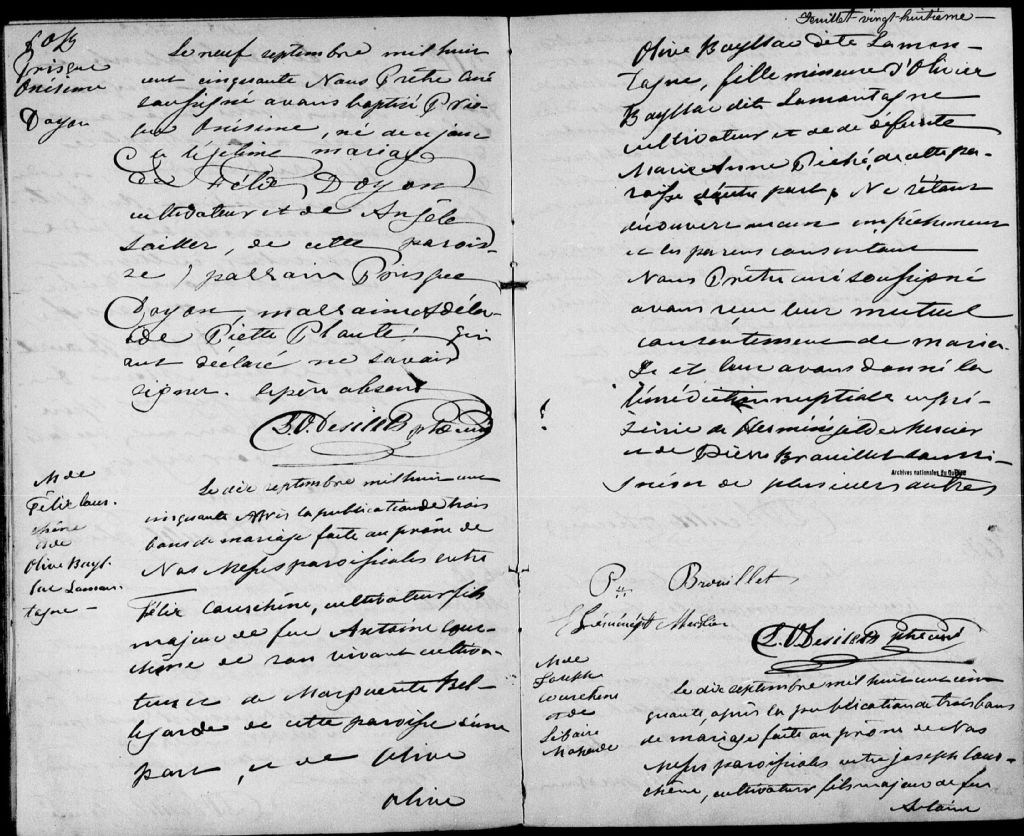 B
Prisque
Onésime
Doyon
Le neuf septembre mil huit
cent cinquante Nous Prêtre Curé
soussigné avons baptisé Pris-
que Onisime, né de ce jour
du légitime mariage
de Félix Doyon
cultivateur et de Angèle
de cette parois-
se ; parrain Prisque
Doyon, marraine
de Piette Planté qui
ont déclaré ne savoir
signer. le père absent
L.O. Desilets ptre curé
M de
Félix Cour-
chêne
et de
Olive Bayl-
lac Lamon-
tagne —
Le dix septembre mil huit cent
cinquante Après la publication de trois
bans de mariage faite au prône de
Nos Messes paroissiales entre
Félix Courchêne, cultivateur fils
majeur de feu Antoine Cour-
chêne de son vivant cultiva-
teur et de Marguerite Bel-
legarde de cette paroisse d'une
part, et de Olive
Olive
Feuillet vingt-huitième —
Olive Bayllac dite Lamon-
tagne, fille mineure d'Olivier
Bayllac dit Lamontagne
cultivateur et de défunte
Marie Anne Piché, de cette pa-
roisse d'autre part, Ne s'étant
découvert aucun empêchement
et les parens consentant
Nous Prêtre curé soussigné
avons reçu leur mutuel
consentement de maria-
ge et leur avons donné la
bénédiction nuptiale en pré-
sence de Herménégilde Mercier
et de Pierre Brouillet
de plusieurs autres
Archives nationales du Québec
Brouillet
L.O. Desilets ptre curé
M de
Joseph
Courchêne
et de
Le dix septembre mil huit cent cin-
quante, après la publication de trois bans
de mariage faite au prône de Nos
Messes paroissiales entre Joseph Cour-
chêne, cultivateur fils majeur de feu
Antoine